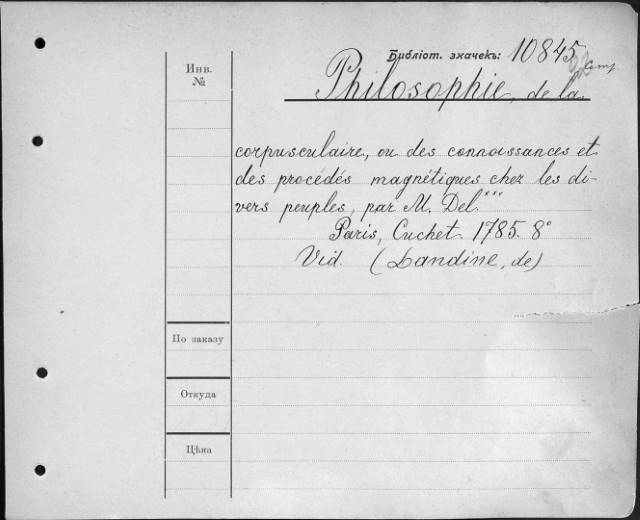 Библіот. значекъ: 10845
Инв.
№
Philosophie, de la
corpusculaire, ou des connoissances et
des procédés magnétiques chez les di-
vers peuples, par M. Del***
Paris, Cuchet. 1785. 8°
Vid. (Landine, de)
По заказу
Откуда
Цѣна